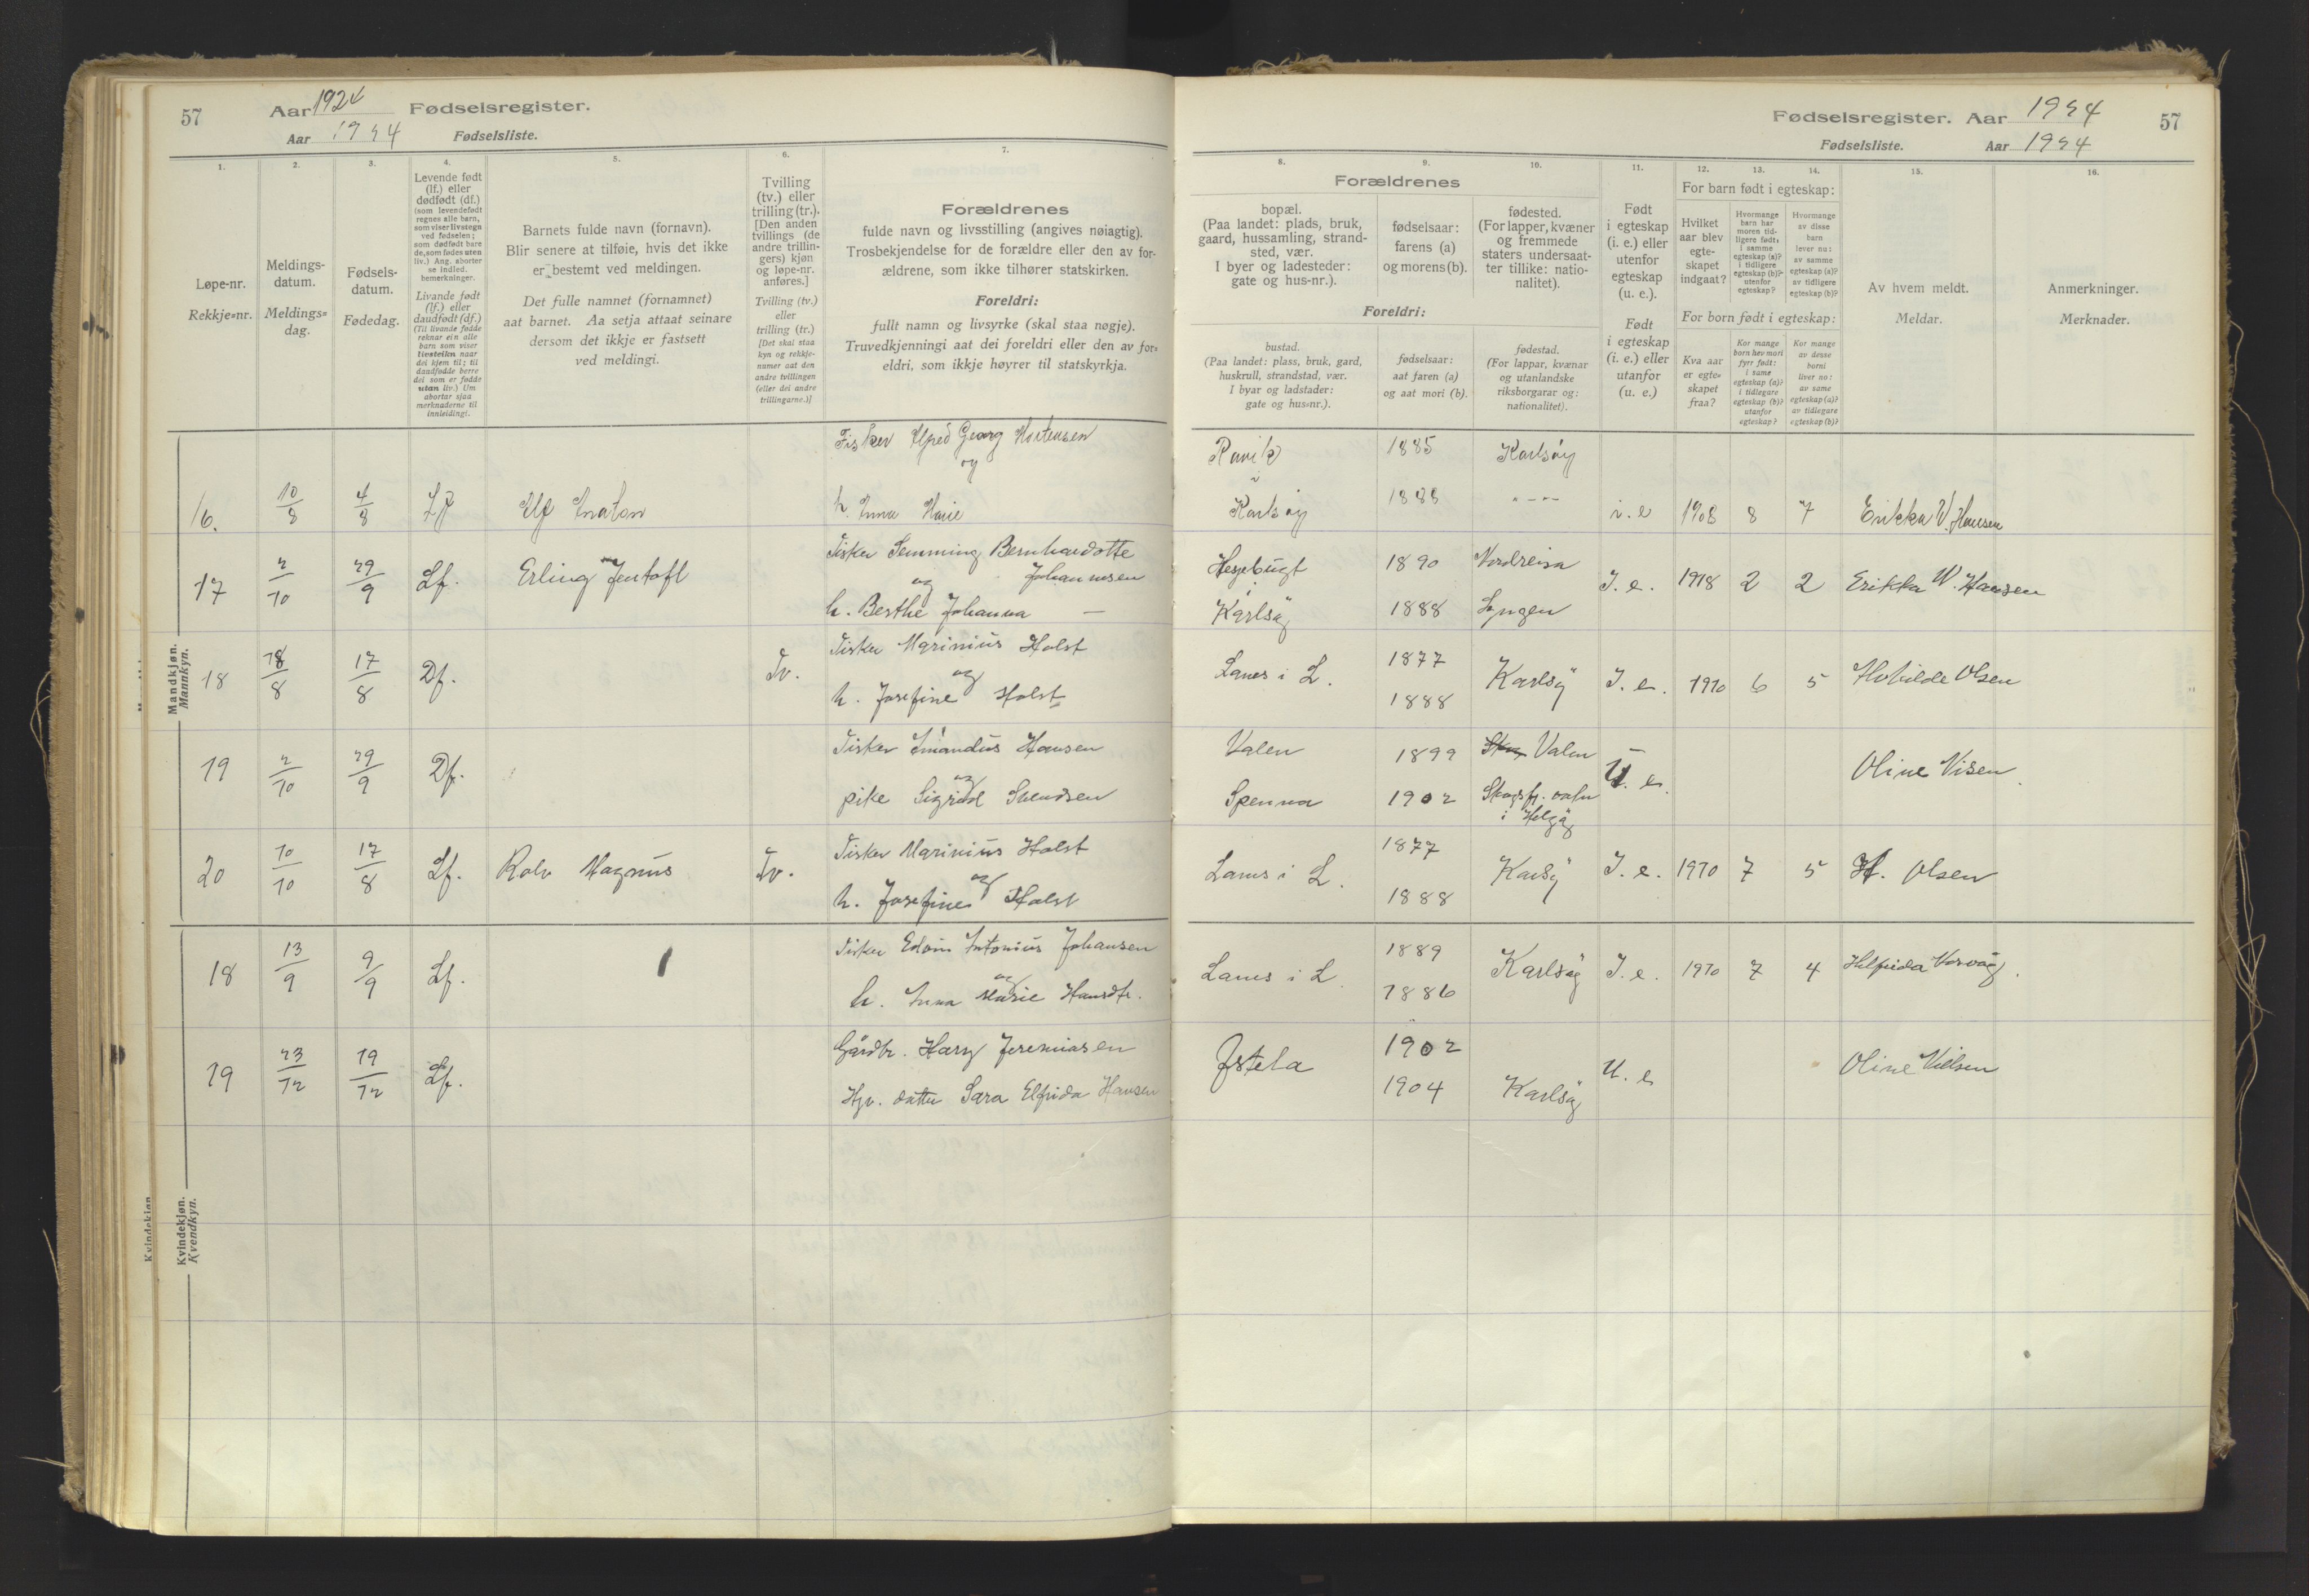 57 Aar 1924 Fødselsregister.
Aar 1924 Fødselsliste.
1.
2.
3.
4.
5.
6.
7.
Løpe-nr.
Rekkje=nr.
Meldings-
datum.
Meldings=
dag.
Fødsels-
datum.
Fødedag.
Levende født
(lf.) eller
dødfødt (df.)
(som levendefødt
regnes alle barn,
som viser livstegn
ved fødselen;
som dødfødt bare
de, som fødes uten
liv.) Ang. aborter
se indled.
bemerkninger.
Livande født
(lf.) eller
daudfødt (df.)
(Til livande fødde
reknar ein alle
barn som viser
livsteikn naar
dei kjem til; til
daudfødde berre
dei som er fødde
utan liv.) Um
abortar sjaa
merknaderne til
innleidingi.
Barnets fulde navn (fornavn).
Blir senere at tilføie, hvis det ikke
er bestemt ved meldingen.
Det fulle namnet (fornamnet)
aat barnet. Aa setja attaat seinare
dersom det ikkje er fastsett
ved meldingi.
Tvilling
(tv.) eller
trilling (tr.).
[Den anden
tvillings (de
andre trillin-
gers) kjøn
og løpe-nr.
anføres.]
Tvilling (tv.)
eller
trilling (tr.)
[Det skal staa
kyn og rekkje-
numer aat den
andre tvillingen
(eller dei andre
trillingarne.)]
Forældrenes
fulde navn og livsstilling (angives nøiagtig).
Trosbekjendelse for de forældre eller den av for-
ældrene, som ikke tilhører statskirken.
Foreldri:
fullt namn og livsyrke (skal staa nøgje).
Truvedkjenningi aat dei foreldri eller den av for=
eldri, som ikkje høyrer til statskyrkja.
Mandkjøn.
Mannkyn.
Fisker Georg Mortensen
og
16. 10/8 4/8 Lf h. Anna Marie
Fisker Hemming Bernhardotte
17 2/10 29/9 Lf. Erling Jentoft og Johannesen
h. Berthe Johanna —
Fisker Marinius Holst
18 18/8 17/8 Df. Tv. og
h. Josefine Holst
Fisker Amandus Hansen
19 2/10 29/9 Df. og
pike Sigrid Svendsen
Fisker Marinius Holst
20 10/10 17/8 Lf. Rolv Magnus Tv. og
h. Josefine Holst
Kvindekjøn.
Kvendkyn.
Fisker Edvin Antonius Johansen
18 13/9 9/9 Lf. og
h. Anna Marie Hansdtr.
Gårdbr. Harry Jeremiasen
19 23/12 19/12 Lf.
Hjv. datter Sara Elfrida Hansen
Fødselsregister. Aar 1924 57
Fødselsliste. Aar 1924
8.
9.
10.
11.
12.
13.
14.
15.
16.
Forældrenes
bopæl.
(Paa landet: plads, bruk,
gaard, hussamling, strand-
sted, vær.
I byer og ladesteder:
gate og hus-nr.).
fødselsaar:
farens (a)
og morens (b).
fødested.
(For lapper, kvæner
og fremmede
staters undersaat-
ter tillike: natio-
nalitet).
Foreldri:
bustad.
(Paa landet: plass, bruk, gard,
huskrull, strandstad, vær.
I byar og ladstader:
gate og hus=nr.).
fødselsaar:
aat faren (a)
og aat mori (b).
fødestad.
(For lappar, kvænar
og utanlandske
riksborgarar og:
nationalitet).
Født
i egteskap
(i. e.) eller
utenfor
egteskap
(u. e.).
Født
i egteskap
(i. e.) eller
utanfor
(u. e.)
For barn født i egteskap:
Hvilket
aar blev
egte-
skapet
indgaat?
Hvormange
barn har
moren tid-
ligere født:
i samme
egteskap (a)?
i tidligere
egteskap (b)?
utenfor
egteskap?
Hvormange
av disse
barn
lever nu:
av samme
egteskap (a)?
av tidligere
egteskap (b)?
For born født i egteskap:
Kva aar
er egte=
skapet
fraa?
Kor mange
born hev mori
fyrr født:
i same
egteskap (a)?
i tidlegare
egteskap (b)?
utanfor
egteskap?
Kor mange
av desse
borni
liver no:
av same
egteskap (a)?
av tidlegare
egteskap (b)?
Av hvem meldt.
Meldar.
Anmerkninger.
Merknader.
1885 Karlsøy
Karlsøy 1888 " — — i. e 1908 8 7 Erikka W. Hansen
Hessebugt 1890 Nordreisa
I. e. 1918 2 2 Erikka W. Hansen
Karlsøy 1888 Lyngen
Lanes i L. 1877
Karlsøy I. e. 1910 6 5 Hotilde Olsen
1888
Valen 1899 Valen
U. e.
Spenna 1902
i Helgøy
1877
Lanes i L. Karlsøy I. e. 1910 7 5 H. Olsen
1888
1889
Lanes i L. Karlsøy I. e. 1910 7 4
1886
1902
U. e
1904 Karlsøy